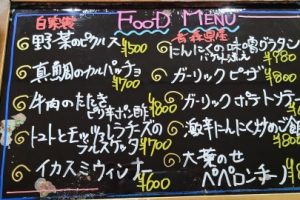 FOOD MENU
自家製
野菜のピクルス ¥500
真鯛のカルパッチョ ¥700
牛肉のたたき
ピリ辛ポン酢 ¥800
トマトとモッツァレラチーズの
ブルスケッタ ¥700
イカスミウィンナー ¥600
青森県産
にんにくの味噌グラタン
バケット添え ¥980
ガーリックピザ ¥80
ガーリックポテトフライ
激辛にんにく炒めご飯 ¥80
大葉のせ
ペペロンチーノ